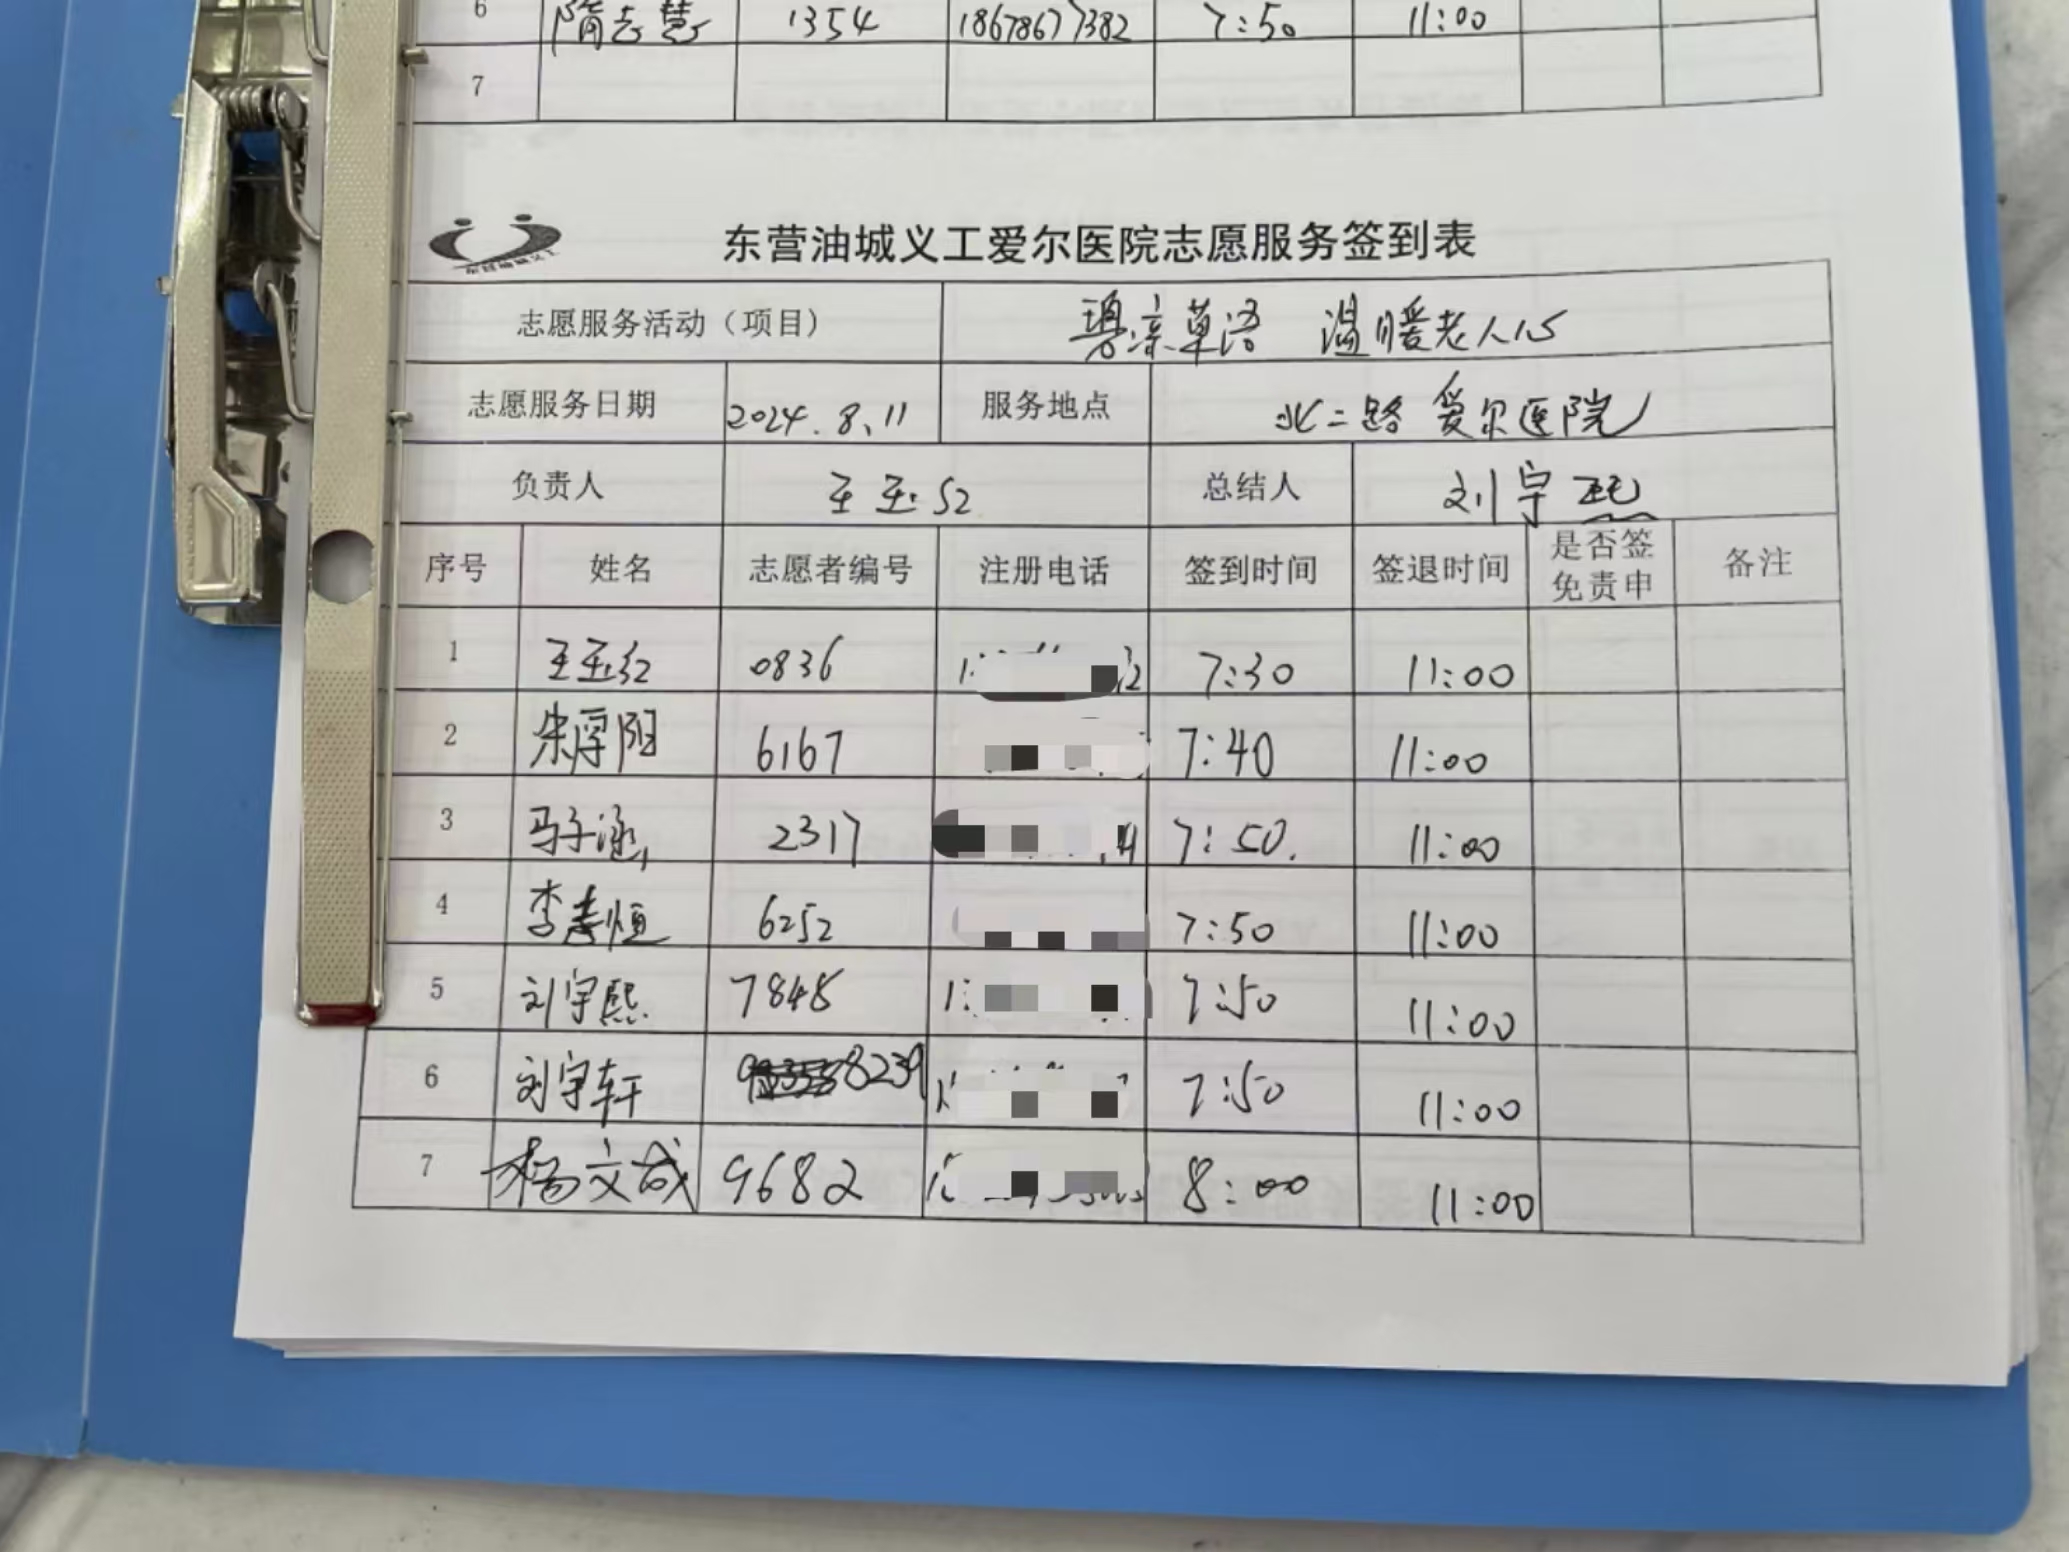 6 隋志慧 1354 18678677382 7:50 11:00
7
东营油城义工
东营油城义工爱尔医院志愿服务签到表
志愿服务活动（项目） 温暖老人心
志愿服务日期 2024.8.11 服务地点 北二路 爱尔医院
负责人 王玉红 总结人 刘宇熙
序号 姓名 志愿者编号 注册电话 签到时间 签退时间 是否签免责申 备注
1 王玉红 0836 7:30 11:00
2 朱厚阳 6167 7:40 11:00
3 马子涵 2317 7:50 11:00
4 李恒 6252 7:50 11:00
5 刘宇熙 7848 7:50 11:00
6 刘宇轩 8239 7:50 11:00
7 杨文成 9682 8:00 11:00